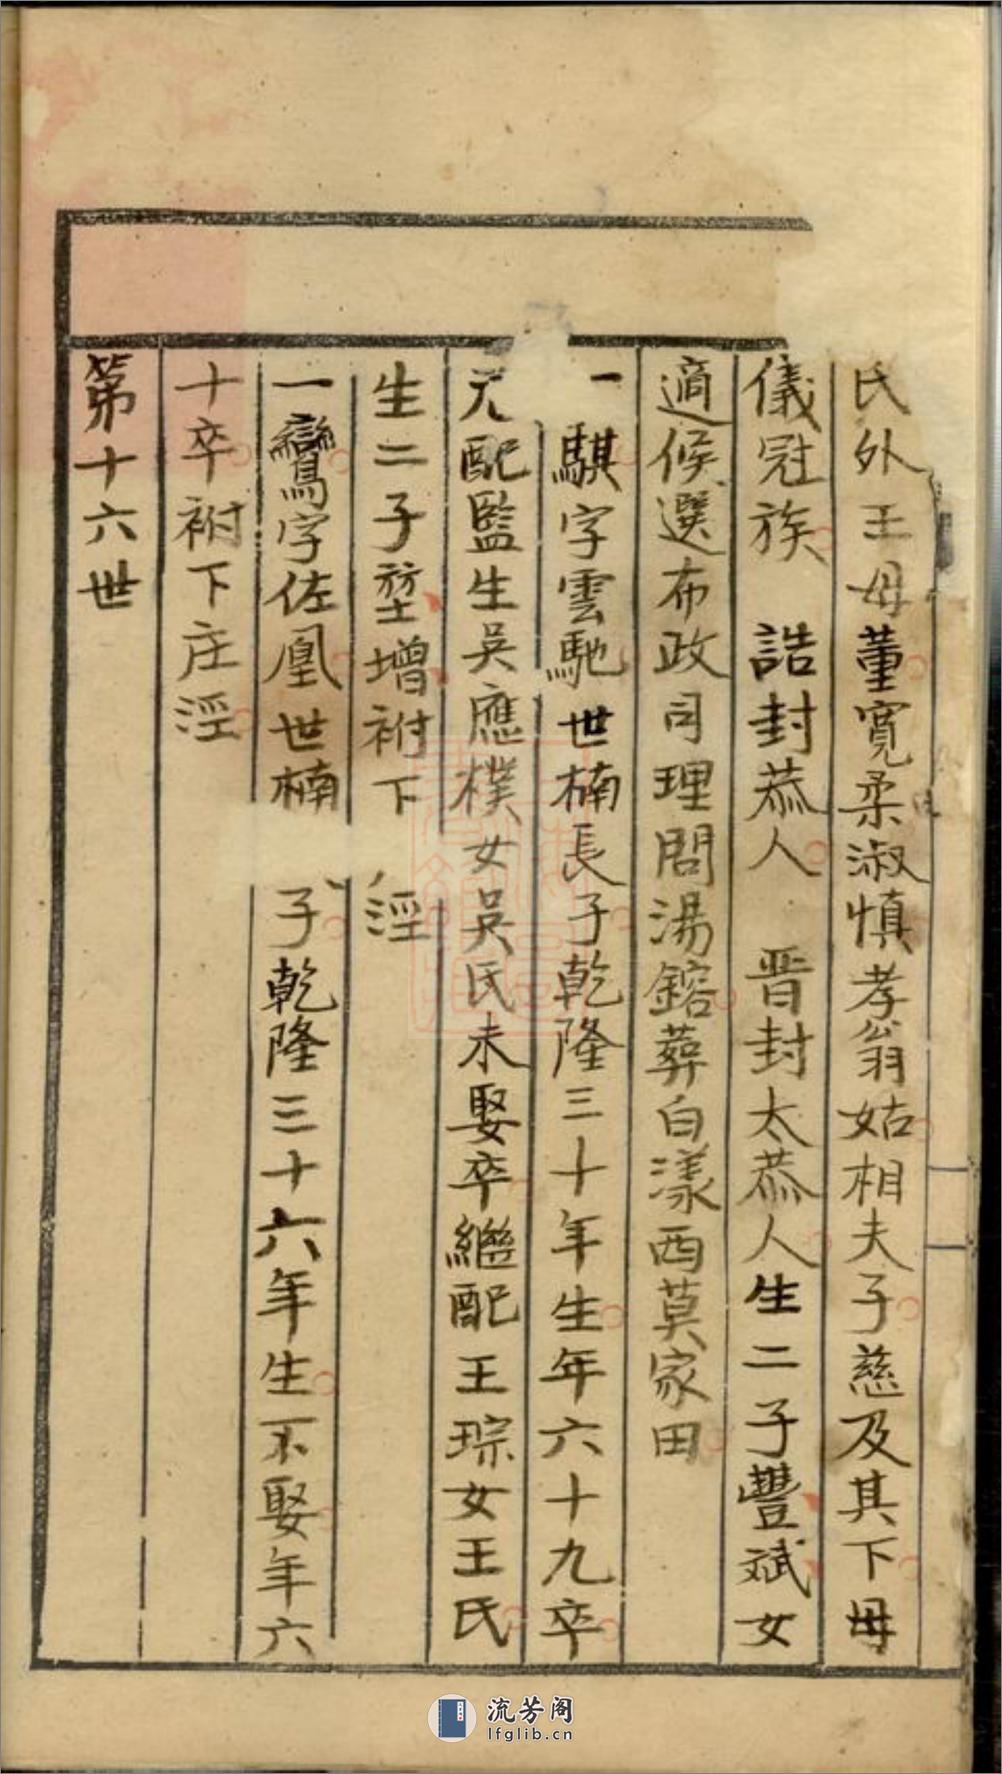 氏外王母董寬柔淑慎孝翁姑相夫子慈及其下母
儀冠族　誥封恭人　晋封太恭人生二子豐斌女
適候選布政司理問湯鎔葬白漾西莫家田
一騏字雲馳世楠長子乾隆三十年生年六十九卒
元配監生吳應樸女吳氏未娶卒繼配王琮女王氏
生二子堃增祔下　涇
一鸞字佐凰世楠　子乾隆三十六年生不娶年六
十卒祔下庄涇
第十六世
流芳阁
lfglib.cn